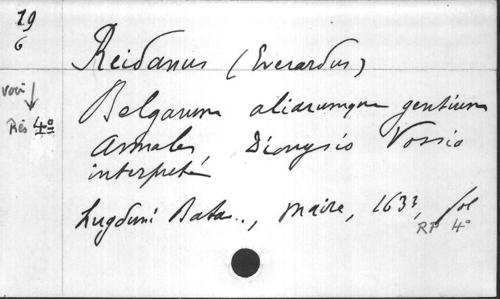 19
6
Reidanus (Everardus)
voir
Rés 4º
Belgarum aliarumque gentium
Annales Dionysio Vossio
interpreté
Lugduni Bata.., Maire, 1633, fol
RP 4º